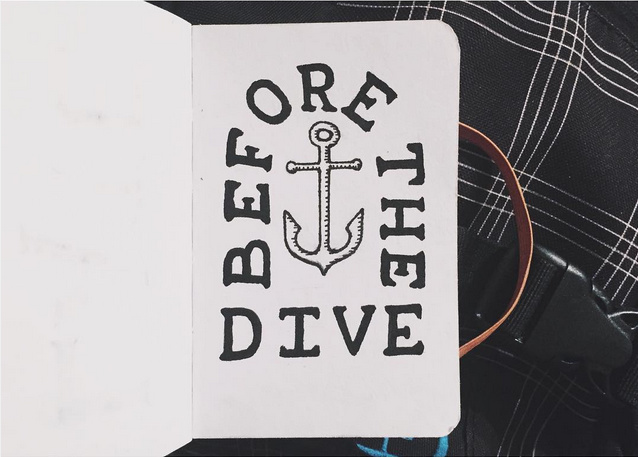 BEFORE THE
DIVE